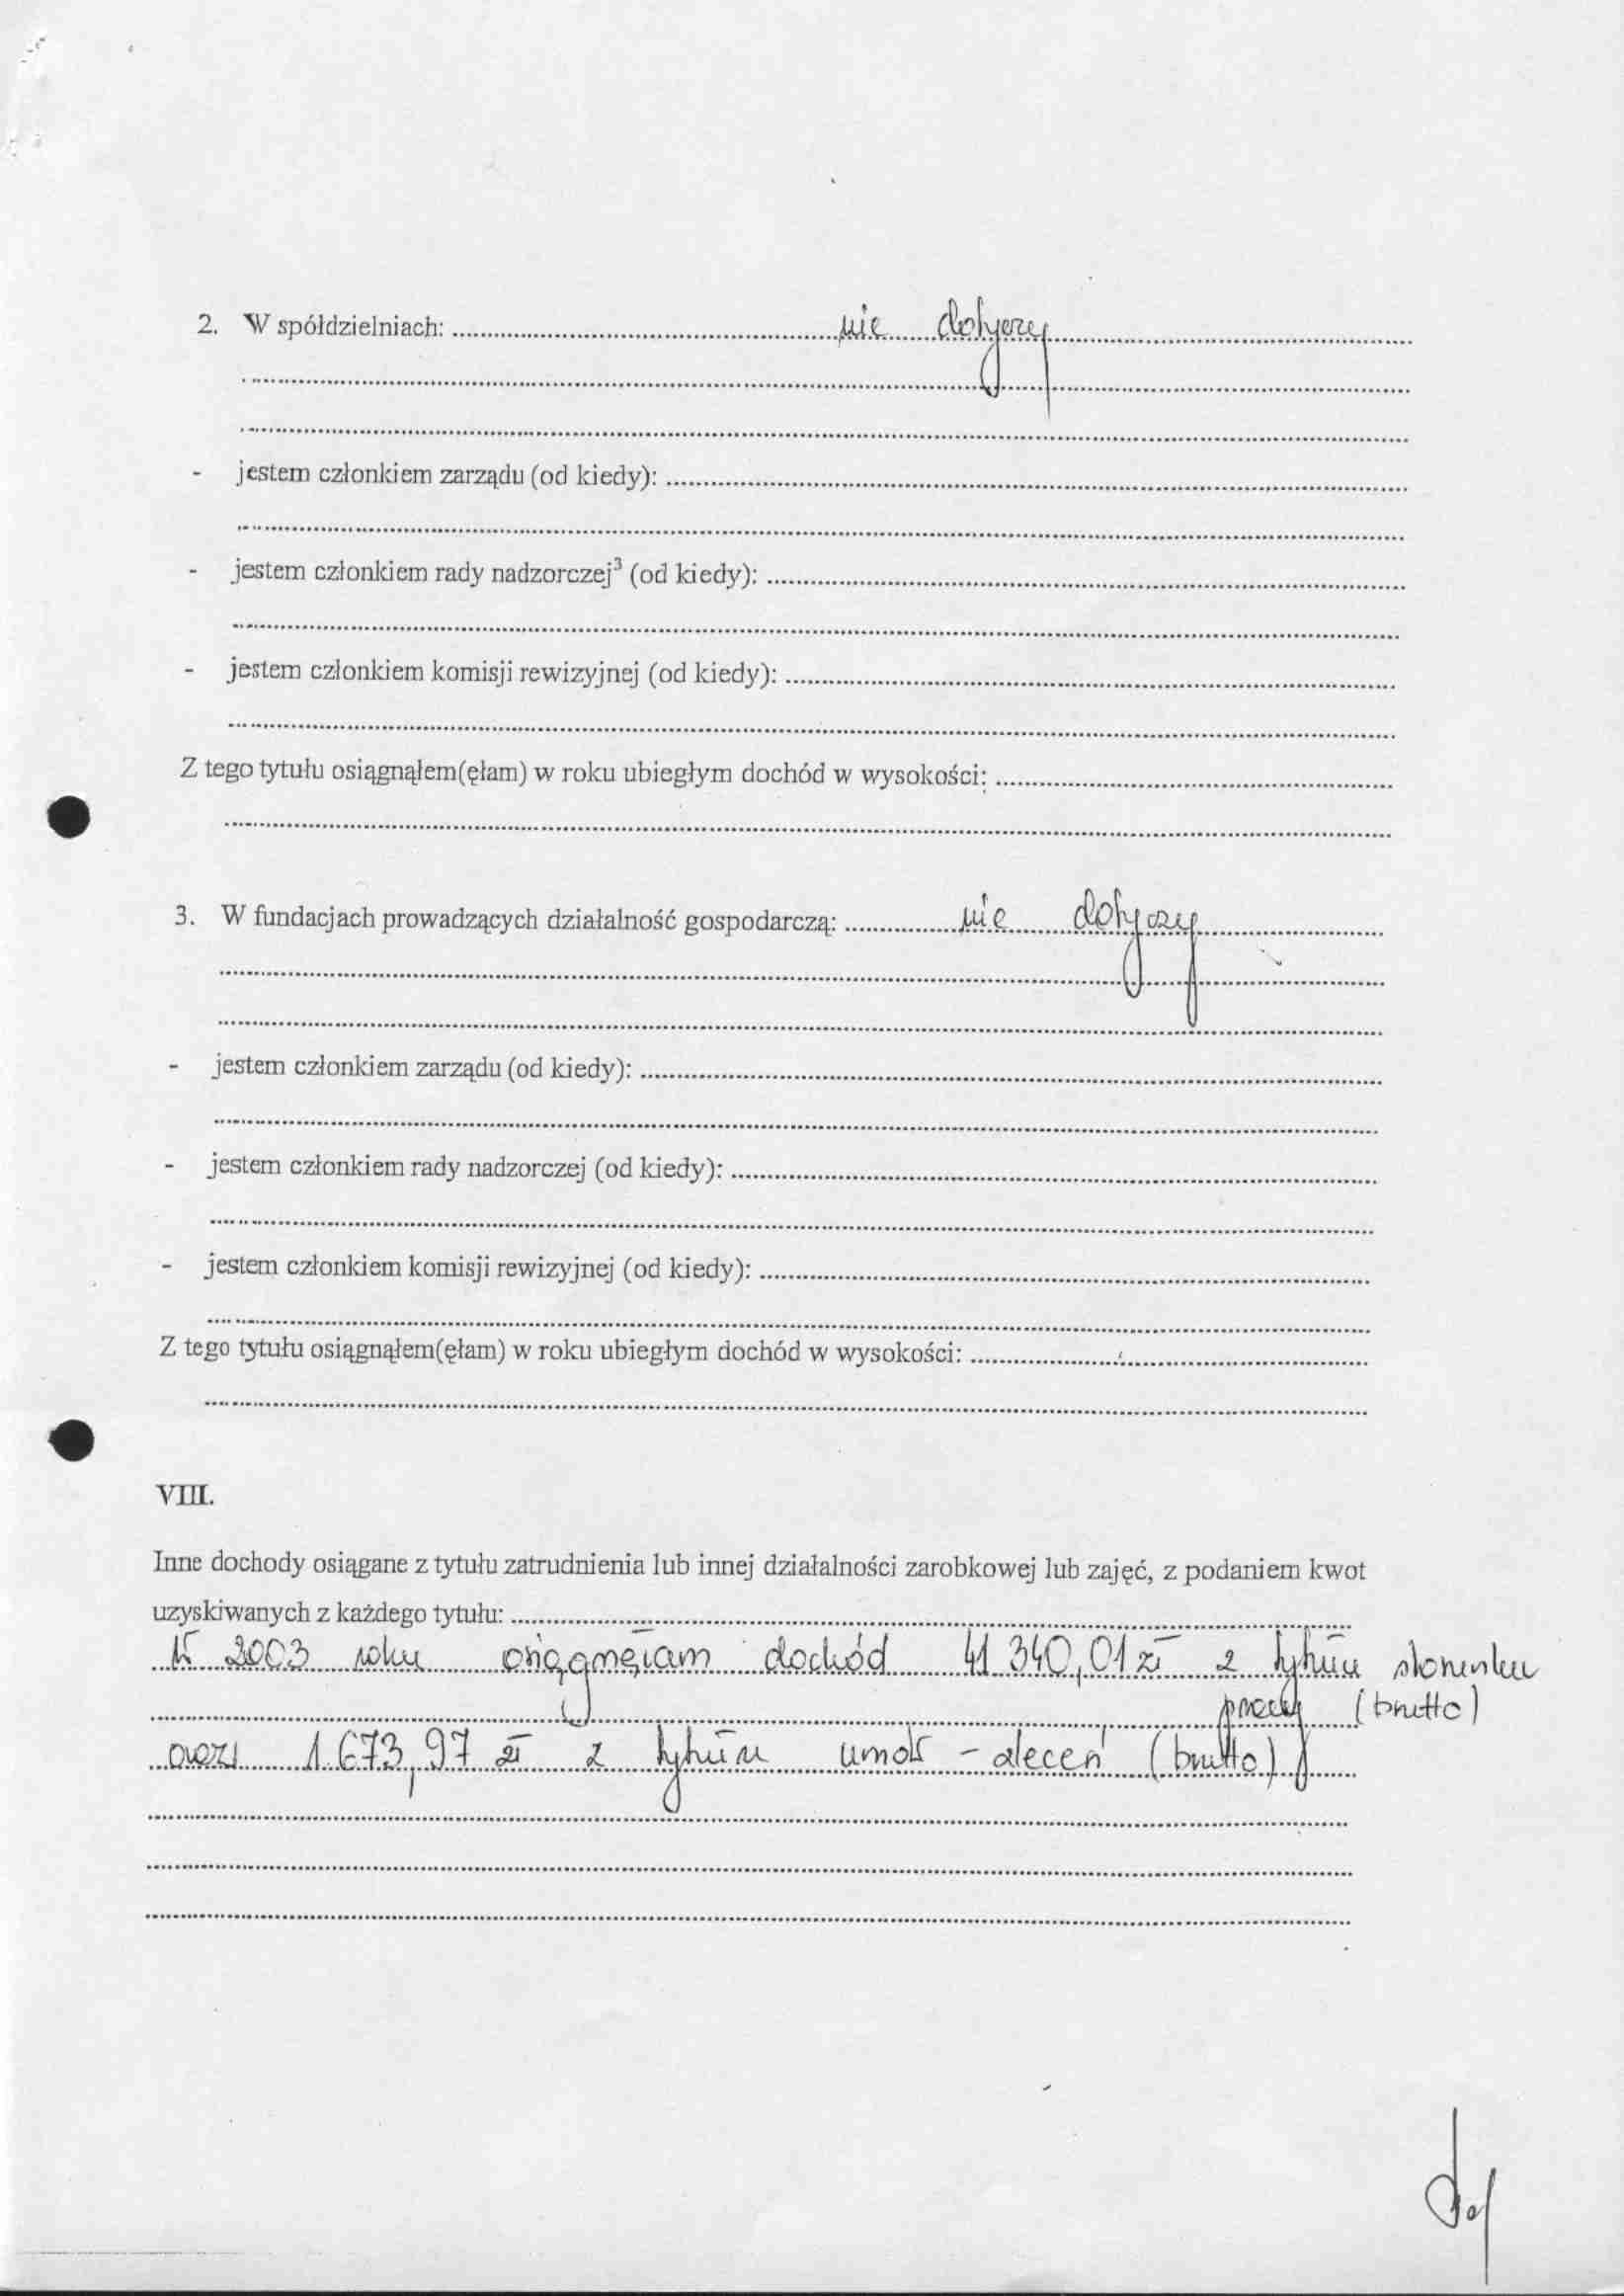 2. W spółdzielniach: nie dotyczy
- jestem członkiem zarządu (od kiedy):
- jestem członkiem rady nadzorczej³ (od kiedy):
- jestem członkiem komisji rewizyjnej (od kiedy):
Z tego tytułu osiągnąłem(ęłam) w roku ubiegłym dochód w wysokości:
3. W fundacjach prowadzących działalność gospodarczą: nie dotyczy
- jestem członkiem zarządu (od kiedy):
- jestem członkiem rady nadzorczej (od kiedy):
- jestem członkiem komisji rewizyjnej (od kiedy):
Z tego tytułu osiągnąłem(ęłam) w roku ubiegłym dochód w wysokości:
VIII.
Inne dochody osiągane z tytułu zatrudnienia lub innej działalności zarobkowej lub zajęć, z podaniem kwot
uzyskiwanych z każdego tytułu:
W 2003 roku osiągnęłam dochód 41 340,01 zł z tytułu stosunku
pracy (brutto)
oraz 1.673,97 zł z tytułu umów - zleceń (brutto)